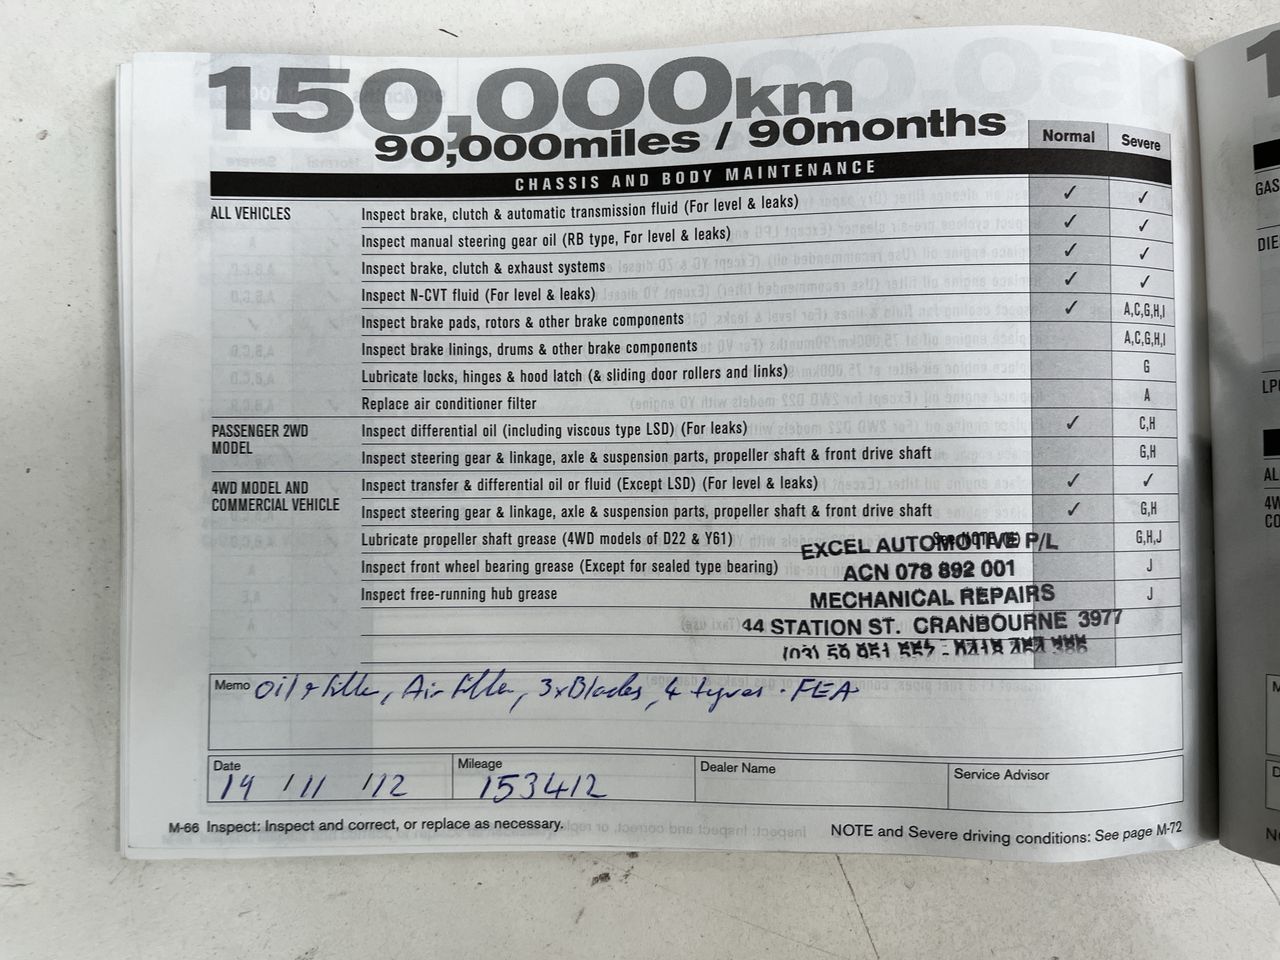 150,000km
90,000miles / 90months
Normal
Severe
CHASSIS AND BODY MAINTENANCE
ALL VEHICLES
Inspect brake, clutch & automatic transmission fluid (For level & leaks) ✓ ✓
Inspect manual steering gear oil (RB type, For level & leaks) ✓ ✓
Inspect brake, clutch & exhaust systems ✓ ✓
Inspect N-CVT fluid (For level & leaks) ✓ ✓
Inspect brake pads, rotors & other brake components ✓ A,C,G,H,I
Inspect brake linings, drums & other brake components A,C,G,H,I
Lubricate locks, hinges & hood latch (& sliding door rollers and links) G
Replace air conditioner filter A
PASSENGER 2WD
MODEL
Inspect differential oil (including viscous type LSD) (For leaks) ✓ C,H
Inspect steering gear & linkage, axle & suspension parts, propeller shaft & front drive shaft G,H
4WD MODEL AND
COMMERCIAL VEHICLE
Inspect transfer & differential oil or fluid (Except LSD) (For level & leaks) ✓ ✓
Inspect steering gear & linkage, axle & suspension parts, propeller shaft & front drive shaft ✓ G,H
Lubricate propeller shaft grease (4WD models of D22 & Y61) See NOTE G,H,J
Inspect front wheel bearing grease (Except for sealed type bearing) J
Inspect free-running hub grease J
EXCEL AUTOMOTIVE P/L
ACN 078 892 001
MECHANICAL REPAIRS
44 STATION ST. CRANBOURNE 3977
Memo Oil & filter, Air filter, 3xBlades, 4 tyres. FEA
Date
19 / 11 / 12
Mileage
153412
Dealer Name
Service Advisor
M-66 Inspect: Inspect and correct, or replace as necessary.
NOTE and Severe driving conditions: See page M-72
GAS
DIE
LP
AL
4W
CO
M
D
N